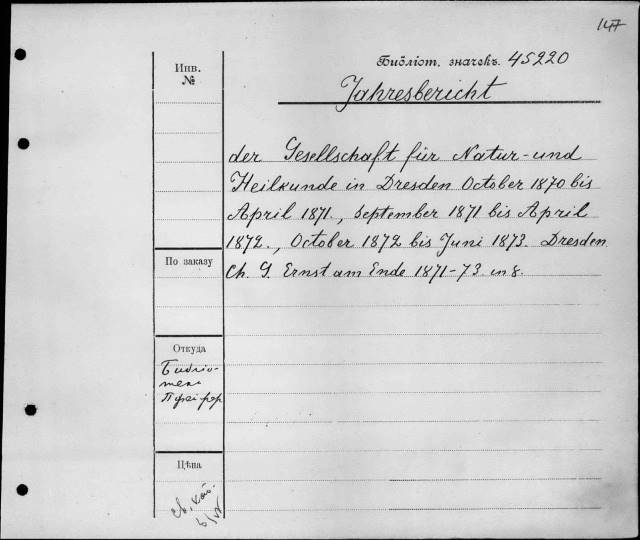 147
Библіот. значекъ. 45220
Jahresbericht
Инв.
№
der Gesellschaft für Natur- und
Heilkunde in Dresden October 1870 bis
April 1871., September 1871 bis April
1872., October 1872 bis Juni 1873. Dresden
Ch. G. Ernst am Ende 1871-73. in 8.
По заказу
Откуда
Библіо-
тека
Цѣна